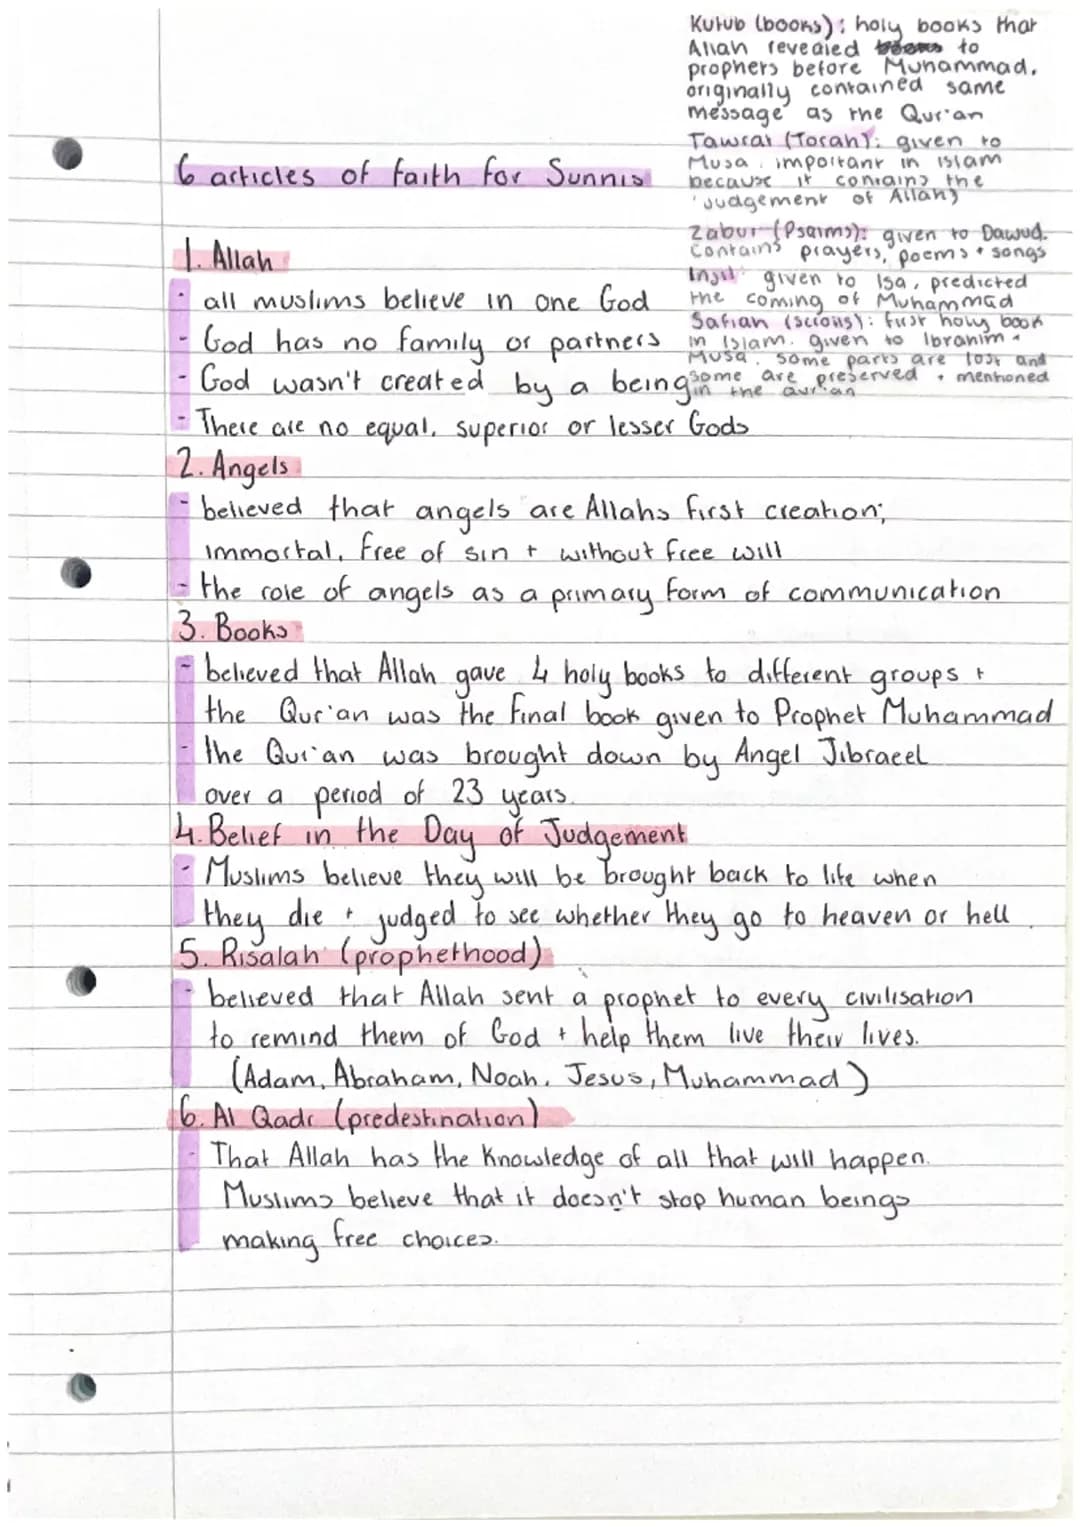 Kutub (books): holy books that
Allah revealed to
prophets before Muhammad.
originally contained same
message as the Qur'an
Tawrat (Torah): given to
Musa. important in islam
because it contains the
'Judgement of Allah'
Zabur (Psalms): given to Dawud.
Contains prayers, poems + songs
Injil: given to Isa, predicted
the coming of Muhammad
Safiah (scrolls): first holy book
in Islam. given to Ibrahim +
Musa. some parts are lost and
some are preserved + mentioned
in the Qur'an
6 articles of faith for Sunnis
1. Allah
- all muslims believe in one God
- God has no family or partners
- God wasn't created by a being
- There are no equal, superior or lesser Gods
2. Angels
- believed that angels are Allahs first creation;
immortal, free of sin + without free will
- the role of angels as a primary form of communication
3. Books
- believed that Allah gave 4 holy books to different groups +
the Qur'an was the final book given to Prophet Muhammad
- the Qur'an was brought down by Angel Jibraeel
over a period of 23 years.
4. Belief in the Day of Judgement
- Muslims believe they will be brought back to life when
they die + judged to see whether they go to heaven or hell
5. Risalah (prophethood)
- believed that Allah sent a prophet to every civilisation
to remind them of God + help them live their lives.
(Adam, Abraham, Noah, Jesus, Muhammad)
6. Al Qadr (predestination)
- That Allah has the knowledge of all that will happen.
Muslims believe that it doesn't stop human beings
making free choices.